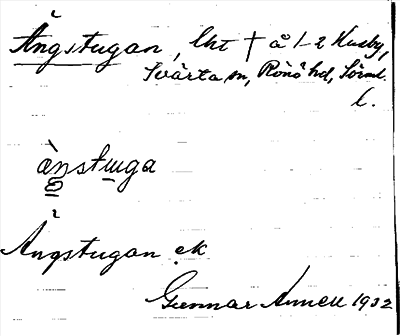 Ängstugan, lht † å 1-2 Husby,
Svärta sn, Rönö hd, Södml.
L.
ànstuga
Ängstugan ek
Gunnar Annell 1932